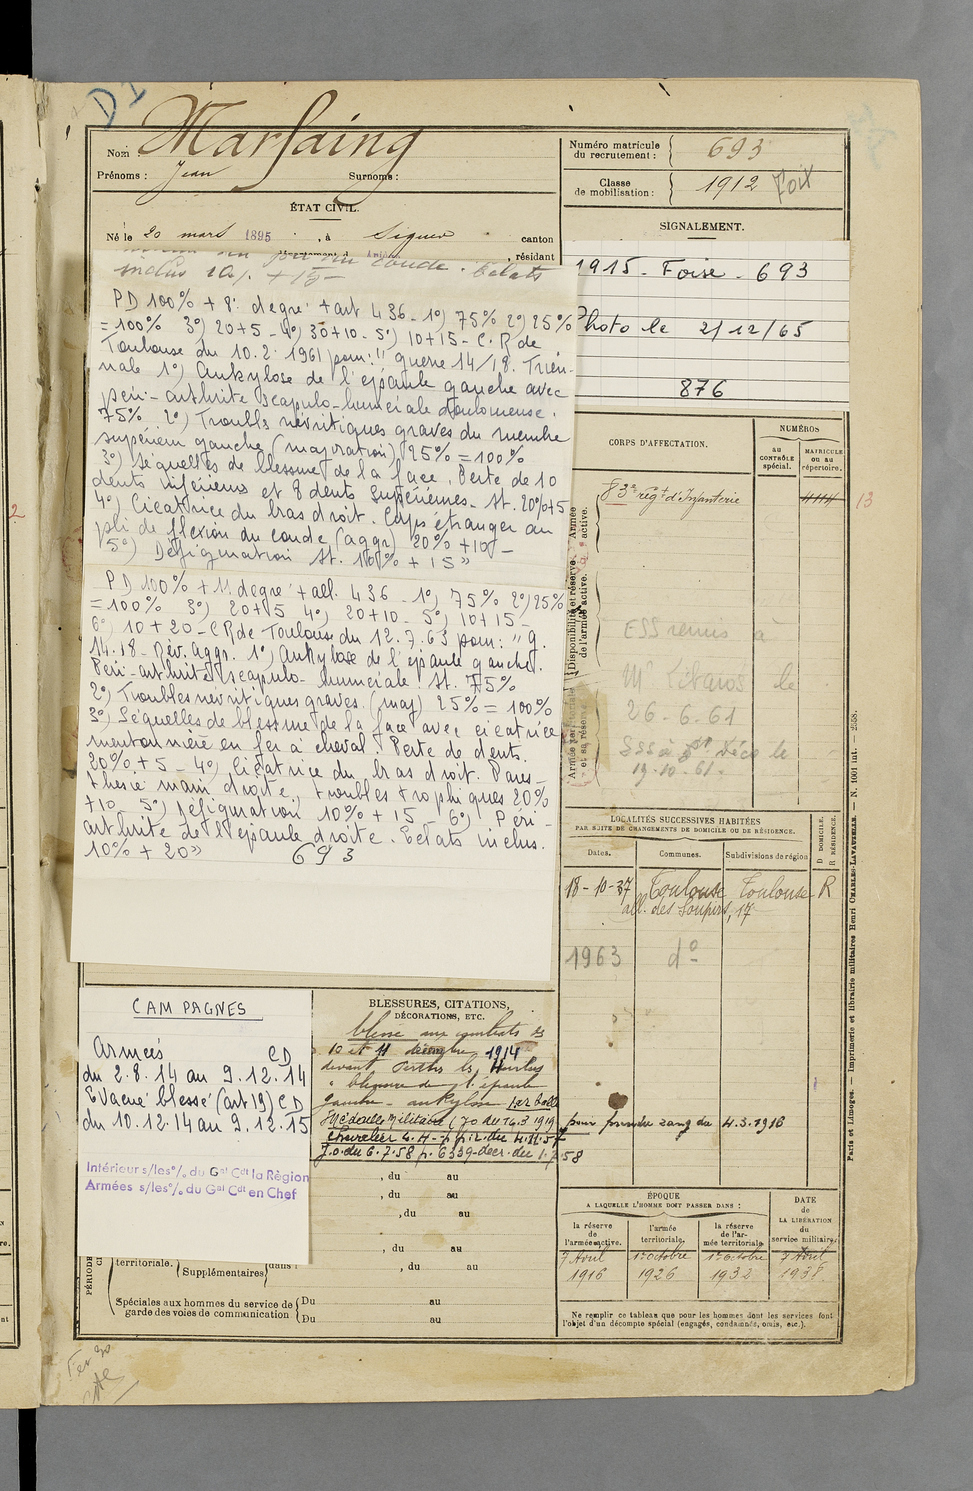 D1
Nom : Marfaing
Prénoms : Jean Surnoms :
ÉTAT CIVIL.
Né le 20 mars 1895, à Siguer canton
, résidant
coude. Eclats
inclus 10% + 15 —
PD 100% + 8° degré + art 436 - 1°) 75% 2°) 25%
= 100% 3°) 20+5 - 4°) 30+10 - 5°) 10+15 - C.R de
Toulouse du 10.2.1961 pour : " guerre 14/18. Trien-
nale 1°) Ankylose de l'épaule gauche avec
péri-arthrite scapulo-humérale douloureuse.
75% 2°) Troubles névritiques graves du membre
supérieur gauche (majoration) 25% = 100%
3°) Séquelles de blessure de la face. Perte de 10
dents inférieures et 8 dents supérieures. St. 20%+5
4°) Cicatrice du bras droit. Corps étranger au
pli de flexion du coude (aggr) 20% +10 —
5°) Défiguration St. 10% + 15 »
PD 100% + 11 degré + all. 436 - 1°) 75% 2°) 25%
= 100% 3°) 20+5 4°) 20+10 - 5°) 10+15 -
6°) 10+20 - CR de Toulouse du 12.7.63 pour : " g.
14.18 - Rév. Aggr. 1°) Ankylose de l'épaule gauche.
Péri-arthrite scapulo-humérale. St. 75%
2°) Troubles névritiques graves. (maj) 25% = 100%
3°) Séquelles de blessure de la face avec cicatrice
mentonnière en fer à cheval. Perte de dents.
20% + 5 - 4°) Cicatrice du bras droit. Pares-
thésie main droite, troubles trophiques 20%
+10 - 5°) Défiguration 10% + 15 - 6°) Péri-
arthrite de l'épaule droite. Eclats inclus.
10% + 20 »
693
CAMPAGNES
Armées CD
du 2.8.14 au 9.12.14
Evacué blessé (art 19) CD
du 10.12.14 au 9.12.15
Intérieur s/les °/. du Gal Cdt la Région
Armées s/les °/. du Gal Cdt en Chef
BLESSURES, CITATIONS,
DÉCORATIONS, ETC.
blessé aux combats des
10 et 11 décembre 1914
devant Perthes les Hurlus
" blessure de l'épaule
gauche - ankylose par balle
Médaille Militaire (JO du 14.3.1919) pour prendre rang du 4.3.1916
Chevalier L.H.
J.O. du 6.7.58 p. 6339 - décr. du 1.7.58
, du au
, du au
, du au
, du au
territoriale. Supplémentaires dans , du au
Spéciales aux hommes du service de Du au
garde des voies de communication Du au
Numéro matricule
du recrutement : 693
Classe
de mobilisation : 1912 Foix
SIGNALEMENT.
1915 - Foix - 693
Photo le 2/12/65
876
CORPS D'AFFECTATION.
NUMÉROS
au CONTRÔLE spécial.
MATRICULE ou au répertoire.
83e régt d'Infanterie 13
Disponibilité et réserve de l'armée active. Armée active.
Armée territoriale et sa réserve
ESS remis à
le
26-6-61
19-10-61.
LOCALITÉS SUCCESSIVES HABITÉES
PAR SUITE DE CHANGEMENTS DE DOMICILE OU DE RÉSIDENCE.
Dates. Communes. Subdivisions de région D DOMICILE. R RÉSIDENCE.
18-10-37 Toulouse Toulouse R
all. des Soupirs, 17
1963 do
ÉPOQUE
A LAQUELLE L'HOMME DOIT PASSER DANS :
la réserve de l'armée active.
l'armée territoriale.
la réserve de l'armée territoriale.
DATE de LA LIBÉRATION du service militaire.
7 Avril 1er octobre 1er octobre 7 Avril
1916 1926 1932 1938
Ne remplir ce tableau que pour les hommes dont les services font
l'objet d'un décompte spécial (engagés, condamnés, omis, etc.).
Paris et Limoges. — Imprimerie et librairie militaires Henri CHARLES-LAVAUZELLE. — N. 1001 int. — 2558.